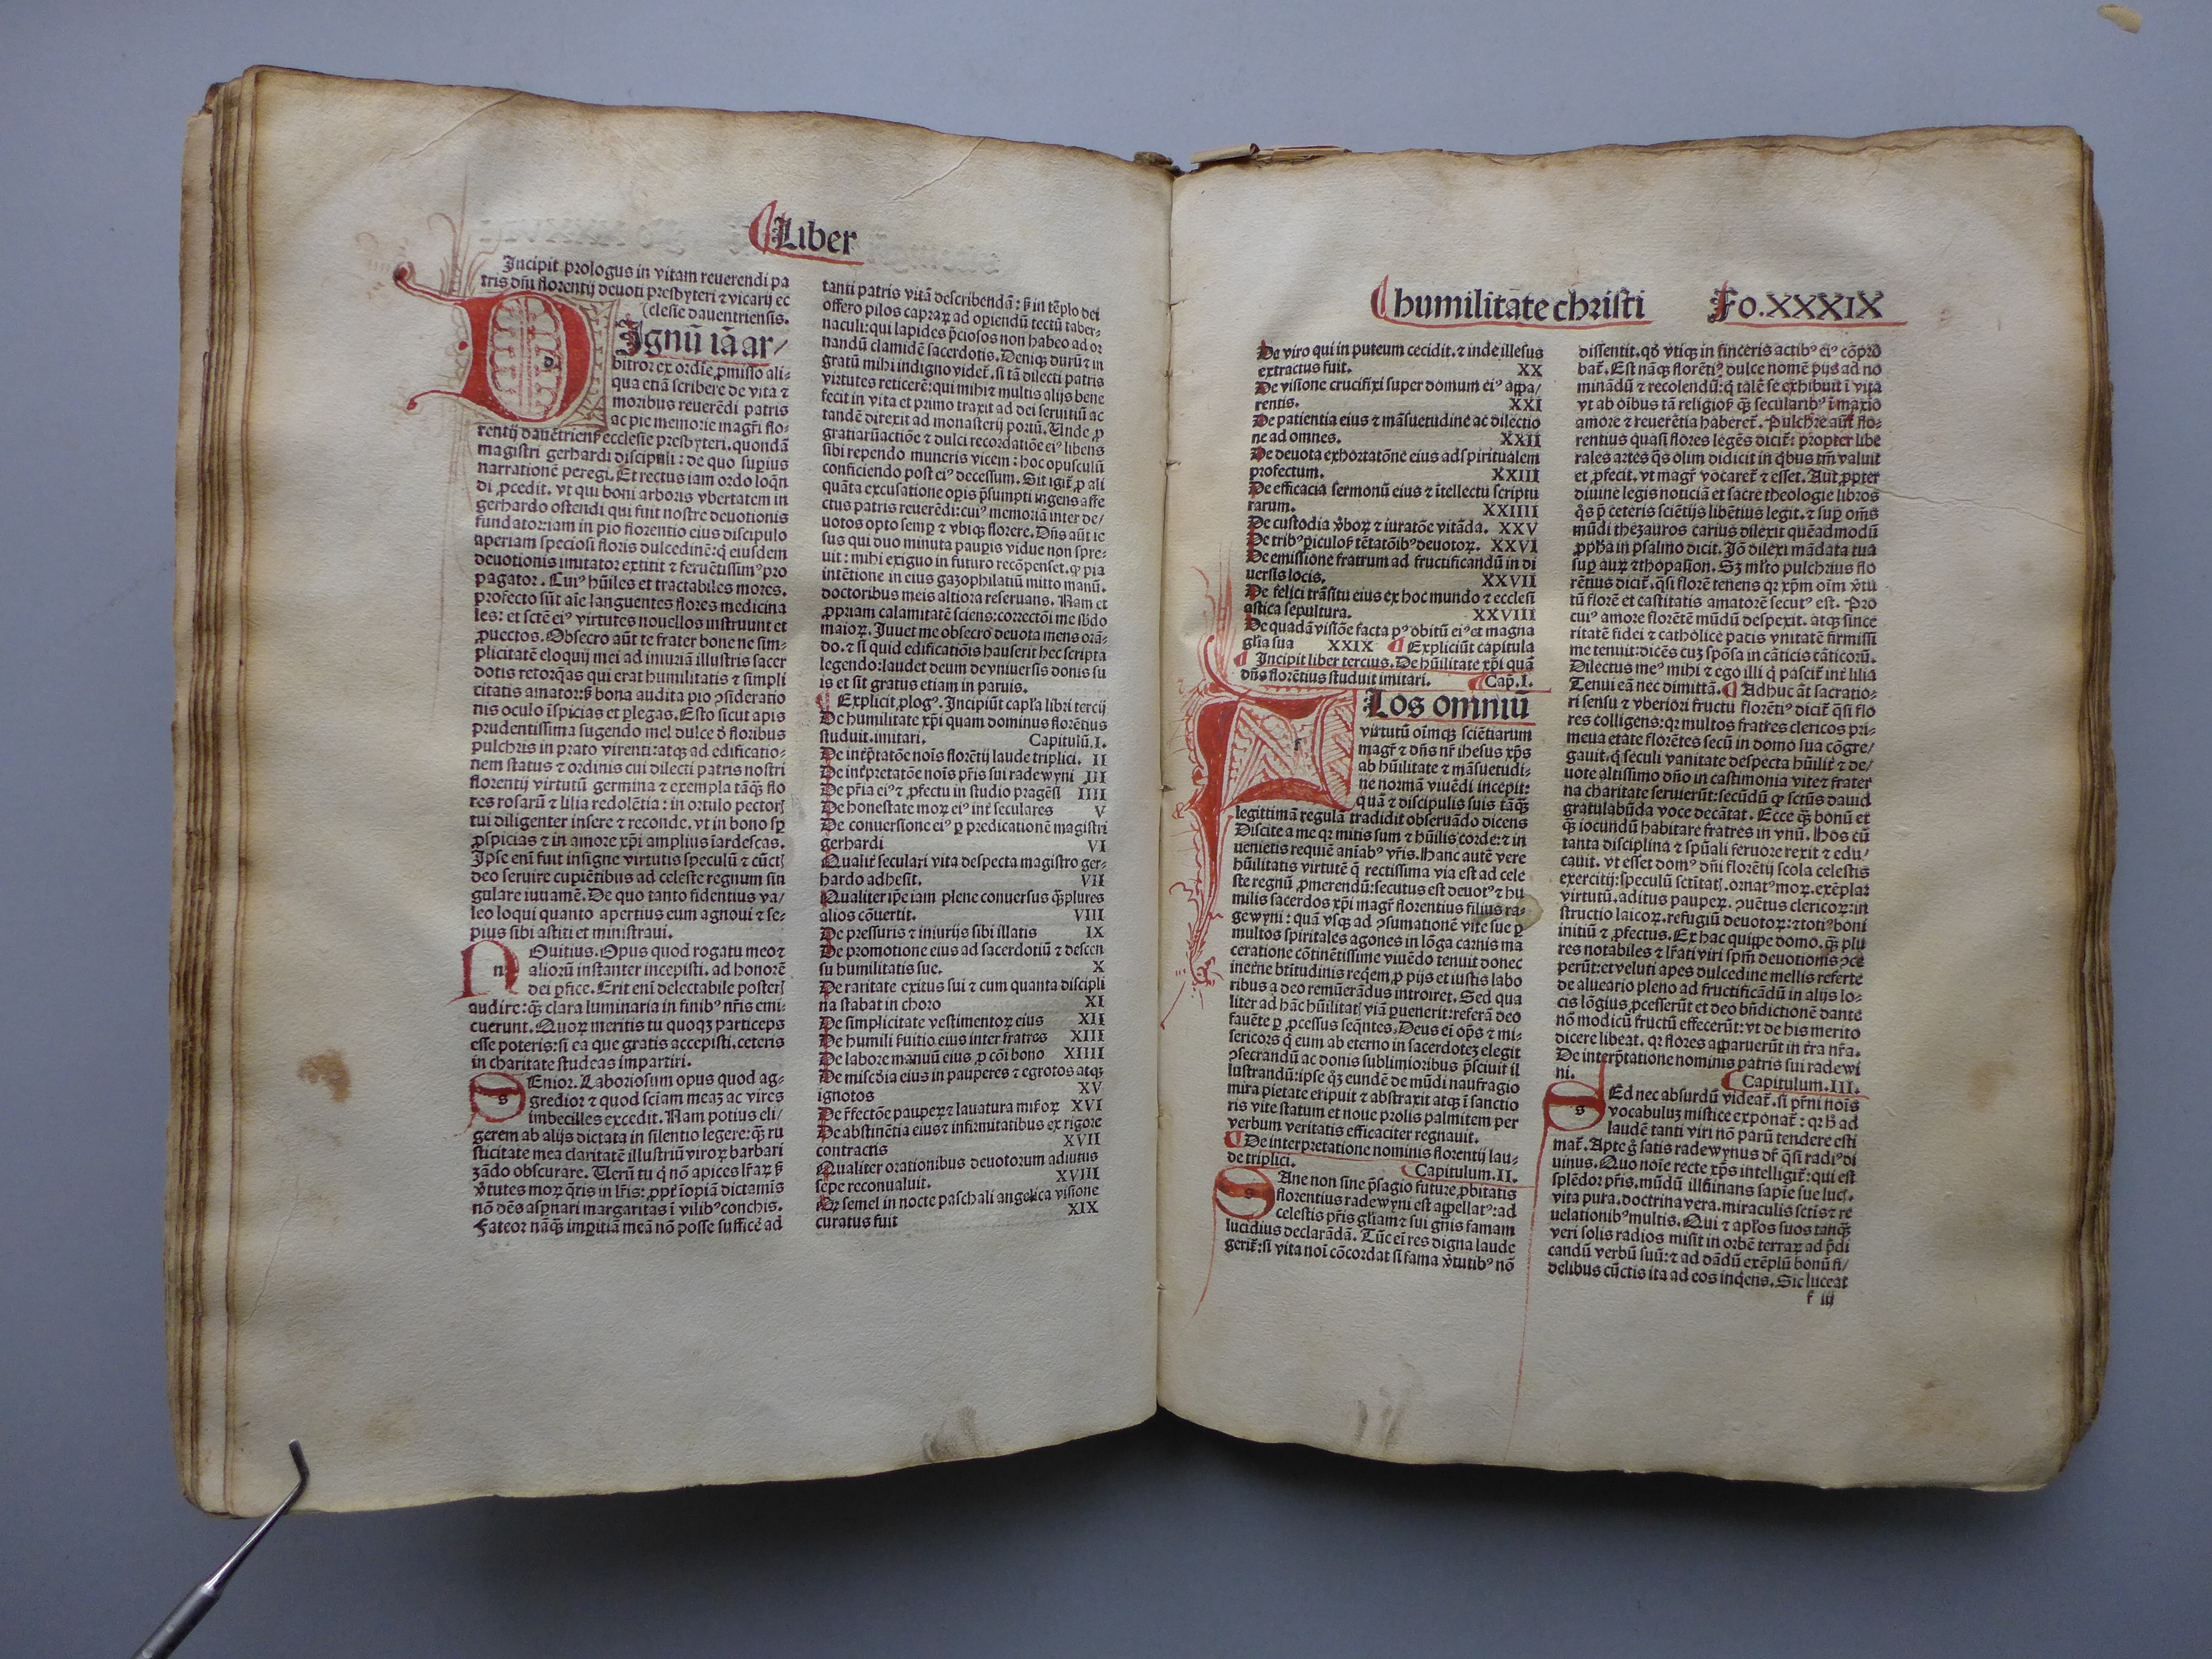 Liber
Incipit prologus in vitam reuerendi pa
tris dñi florentij deuoti presbyteri ⁊ vicarij ec
clesie dauentriensis.
Ignũ iã ar/
bitror ex ordĩe ꝓmisso ali-
qua etiã scribere de vita ⁊
moribus reuerẽdi patris
ac pie memorie magr̃i flo-
rentij dauẽtrienẜ ecclesie presbyteri. quondã
magistri gerhardi discipuli: de quo superius
narrationẽ peregi. Et rectus iam ordo loq̃n
di ꝓcedit. vt qui boni arboris vbertatem in
gerhardo ostendi qui fuit nostre deuotionis
fundator: iam in pio florentio eius discipulo
aperiam speciosi floris dulcedinẽ: q̃ eiusdem
deuotionis imitator extitit ⁊ feruẽtissimꝰ pro
pagator. Cuiꝰ hũiles et tractabiles mores.
profecto sũt aĩe languentes flores medicina
les: et sctẽ eiꝰ virtutes nouellos instruunt et
ꝓuectos. Obsecro aũt te frater bone ne sim-
plicitatẽ eloquij mei ad iniuriã illustris sacer
dotis retorq̃as qui erat humilitatis ⁊ simpli
citatis amator: ẜ bona audita pio ↄsideratio
nis oculo ĩspicias et ꝑlegas. Esto sicut apis
prudentissima sugendo mel dulce ð floribus
pulchris in prato virenti: atqꝫ ad edificatio-
nem status ⁊ ordinis cui dilecti patris nostri
florentij virtutũ germina ⁊ exempla tãq̃ʒ flo
res rosarũ ⁊ lilia redolẽtia: in ortulo pectorꝭ
tui diligenter insere ⁊ reconde. vt in bono sꝑ
ꝓspicias ⁊ in amore xp̃i amplius ĩardescas.
Ipse enĩ fuit insigne virtutis speculũ ⁊ cũctꝭ
deo seruire cupiẽtibus ad celeste regnum sin
gulare iuuamẽ. De quo tanto fidentius va/
leo loqui quanto apertius eum agnoui ⁊ se-
pius sibi astiti et ministraui.
Ouitius. Opus quod rogatu meo ⁊
aliorũ instanter incepisti. ad honorẽ
dei ꝑfice. Erit enĩ delectabile posterꝭ
audire: q̃ʒ clara luminaria in finibꝰ nr̃is emi-
cuerunt. Quoꝝ meritis tu quoqꝫ particeps
esse poteris: si ea que gratis accepisti. ceteris
in charitate studeas impartiri.
Enior. Laboriosum opus quod ag-
gredior ⁊ quod sciam meaʒ ac vires
imbecilles excedit. Nam potius eli/
gerem ab alijs dictata in silentio legere: q̃ʒ ru
sticitate mea claritatẽ illustriũ viroꝝ barbari
zãdo obscurare. Uerũ tu q̃ nõ apices lr̃aꝝ ẜ
v̓tutes moꝝ q̃ris in lr̃is: ꝓpt̃ ĩopiã dictamĩs
nõ deẽs asp̃nari margaritas ĩ vilibꝰ conchis.
Fateor nãq̃ʒ imꝑitiã meã nõ posse sufficẽ ad
tanti patris vitã describendã: ẜ in tẽplo dei
offero pilos capraꝝ ad oꝑiendũ tectũ taber-
naculi: qui lapides p̃ciosos non habeo ad or
nandũ clamidẽ sacerdotis. Deniqꝫ durũ ⁊ in
gratũ mihi indigno videt̃. si tã dilecti patris
virtutes reticerẽ: qui mihi ⁊ multis alijs bene
fecit in vita et primo traxit ad dei seruitiũ ac
tandẽ direxit ad monasterij portũ. Unde ꝓ
gratiarũactiõe ⁊ dulci recordatiõe eiꝰ libens
sibi rependo muneris vicem: hoc opusculũ
conficiendo post eiꝰ decessum. Sit igit̃ ꝓ ali
quãta excusatione oꝑis p̃sumpti ingens affe
ctus patris reuerẽdi: cuiꝰ memoriã inter de/
uotos opto semꝑ ⁊ vbiqꝫ florere. Dñs aũt ie
sus qui duo minuta pauꝑis vidue non spre-
uit: mihi exiguo in futuro recõpenset. qꝙ pia
intẽtione in eius gazophilatiũ mitto manũ.
doctoribus meis altiora reseruans. Nam et
ꝓpriam calamitatẽ sciens: correctõi me s̃bdo
maioꝝ. Juuet me obsecro deuota mens orã-
do. ⁊ si quid edificatiõis hauserit hec scripta
legendo: laudet deum de vniuersis donis su
is et sit gratus etiam in paruis.
Explicit ꝓlogꝰ. Incipiũt capl̃a libri tercij
De humilitate xp̃i quam dominus florẽtius
studuit imitari. Capitulũ. I.
De int̃p̃tatõe noĩs florẽtij laude triplici. II
De int̃pretatõe noĩs pr̃is sui radewyni III
De pr̃ia eiꝰ ⁊ ꝓfectu in studio pragẽsi IIII
De honestate moꝝ eiꝰ int̃ seculares V
De conuersione eiꝰ ꝑ predicationẽ magistri
gerhardi VI
Qualit̃ seculari vita despecta magistro ger-
hardo adhesit. VII
Qualiter ip̃e iam plene conuersus q̃ʒplures
alios cõuertit. VIII
De pressuris ⁊ iniurijs sibi illatis IX
De promotione eius ad sacerdotiũ ⁊ descen
su humilitatis sue. X
De raritate exitus sui ⁊ cum quanta discipli
na stabat in choro XI
De simplicitate vestimentoꝝ eius XII
De humili ẜuitio eius inter fratres XIII
De labore manuũ eius ꝓ cõi bono XIIII
De miscð̃ia eius in pauperes ⁊ egrotos atqꝫ
ignotos XV
De r̃fectõe pauperꝝ ⁊ lauatura misẽoꝝ XVI
De abstinẽtia eius ⁊ infirmitatibus ex rigore
contractis XVII
Qualiter orationibus deuotorum adiutus
sepe reconualuit. XVIII
Qꝙ semel in nocte paschali angelica visione
curatus fuit XIX
humilitate christi Fo. XXXIX
De viro qui in puteum cecidit. ⁊ inde illesus
extractus fuit. XX
De visione crucifixi super domum eiꝰ appa/
rentis. XXI
De patientia eius ⁊ mãsuetudine ac dilectio
ne ad omnes. XXII
De deuota exhortatõne eius ad spiritualem
profectum. XXIII
De efficacia sermonũ eius ⁊ ĩtellectu scriptu
rarum. XXIIII
De custodia v̓boꝝ ⁊ iuratõe vitãda. XXV
De tribꝰ ꝑiculoẜ tẽtatõibꝰ deuotoꝝ. XXVI
De emissione fratrum ad fructificandũ in di
uersis locis. XXVII
De felici trãsitu eius ex hoc mundo ⁊ ecclesi
astica sepultura. XXVIII
De quadã visiõe facta pꝰ obitũ eiꝰ et magna
gl̃ia sua XXIX Expliciũt capitula
Incipit liber tercius. De hũilitate xp̃i quã
dñs florẽtius studuit imitari. Cap̃. I.
Los omniũ
virtutũ oĩmqꝫ sciẽtiarum
magr̃ ⁊ dñs nr̃ ihesus xp̃s
ab hũilitate ⁊ mãsuetudi-
ne normã viuẽdi incepit:
quã ⁊ discipulis suis tãq̃ʒ
legittimã regulã tradidit obseruãdo dicens
Discite a me qꝛ mitis sum ⁊ hũilis corde: ⁊ in
uenietis requiẽ aniabꝰ vr̃is. Hanc autẽ vere
hũilitatis virtutẽ q̃ rectissima via est ad cele
ste regnũ ꝓmerendũ: secutus est deuotꝰ ⁊ hu
milis sacerdos xp̃i magr̃ florentius filius ra-
gewyni: quã vsqꝫ ad ↄsumationẽ vite sue ꝑ
multos spiritales agones in lõga carnis ma
ceratione cõtinẽtissime viuẽdo tenuit donec
inet̃ne bt̃itudinis req̃em ꝓ pijs et iustis labo
ribus a deo remũerãdus introiret. Sed qua
liter ad hãc hũilitatꝭ viã ꝑuenerit: referã deo
fauẽte ꝑ ꝓcessus seq̃ntes. Deus ei op̃s ⁊ mi-
sericors q̃ eum ab eterno in sacerdoteʒ elegit
ↄsecrandũ ac donis sublimioribus p̃sciuit il
lustrandũ: ipse q̃ʒ eundẽ de mũdi naufragio
mira pietate eripuit ⁊ abstraxit atqꝫ ĩ sanctio
ris vite statum et noue prolis palmitem per
verbum veritatis efficaciter regnauit.
De interpretatione nominis florentij lau-
de triplici. Capitulum. II.
Ane non sine p̃sagio future ꝓbitatis
florentius radewyni est appellatꝰ: ad
celestis pr̃is gl̃iam ⁊ sui gñis famam
lucidius declarãdã. Tũc ei res digna laude
gerit̃: si vita noĩ cõcordat si fama v̓tutibꝰ nõ
dissentit. qð vtiqꝫ in sinceris actibꝰ eiꝰ cõpro
bat̃. Est nãqꝫ florẽtiꝰ dulce nomẽ pijs ad no
minãdũ ⁊ recolendũ: q̃ talẽ se exhibuit ĩ vita
vt ab oĩbus tã religioẜ q̃ʒ secularibꝰ ĩ maxĩo
amore ⁊ reuerẽtia haberet̃. Pulchre aũt flo-
rentius quasi flores legẽs dicit̃: propter libe
rales artes q̃s olim didicit in q̃bus tm̃ valuit
et ꝓfecit. vt magr̃ vocaret̃ ⁊ esset. Aut ꝓpter
diuine legis noticiã et sacre theologie libros
q̃s p̃ ceteris sciẽtijs libẽtius legit. ⁊ suꝑ om̃s
mũdi thezauros carius dilexit quẽadmodũ
ꝓpha in psalmo dicit. Jõ dilexi mãdata tua
suꝑ auꝝ ⁊ thopasion. Sʒ ml̃to pulchrius flo
rẽtius dicit̃. q̃si florẽ tenens qꝛ xp̃m oĩm v̓tu
tũ florẽ et castitatis amatorẽ secutꝰ est. Pro
cuiꝰ amore florẽtẽ mũdũ despexit. atqꝫ since
ritatẽ fidei ⁊ catholice patis vnitatẽ firmissi
me tenuit: dicẽs cuʒ spõsa in cãticis cãticorũ.
Dilectus meꝰ mihi ⁊ ego illi q̃ pascit̃ int̃ lilia
Tenui eã nec dimittã. Adhuc aũt sacratio-
ri sensu ⁊ vberiori fructu florẽtiꝰ dicit̃ q̃si flo
res colligens: qꝛ multos fratres clericos pri-
meua etate florẽtes secũ in domo sua cõgre/
gauit. q̃ seculi vanitate despecta hũilit̃ ⁊ de/
uote altissimo dño in castimonia vite ⁊ frater
na charitate seruierũt: secũdũ qꝙ sctũs dauid
gratulabũda voce decãtat. Ecce q̃ʒ bonũ et
q̃ʒ iocundũ habitare fratres in vnũ. Hos cũ
tanta disciplina ⁊ sp̃uali feruore rexit ⁊ edu/
cauit. vt esset domꝰ dñi florẽtij scola celestis
exercitij: speculũ sctĩtatꝭ. ornatꝰ moꝝ. exẽplar
virtutũ. aditus paupeꝝ. ↄuẽtus clericoꝝ: in
structio laicoꝝ. refugiũ deuotoꝝ: ⁊ totiꝰ boni
initiũ ⁊ ꝓfectus. Ex hac quippe domo. q̃ʒ plu
res notabiles ⁊ lr̃ati viri sp̃m deuotionis ↄce
perũt: et veluti apes dulcedine mellis referte
de alueario pleno ad fructificãdũ in alijs lo-
cis lõgius ꝓcesserũt et deo bñdictionẽ dante
nõ modicũ fructũ effecerũt: vt de his merito
dicere libeat. qꝛ flores apparuerũt in t̃ra nr̃a.
De interp̃tatione nominis patris sui radewi
ni. Capitulum. III.
Ed nec absurdũ videat̃. si pr̃ni noĩs
vocabuluʒ mistice exponat̃: qꝛ ƕ ad
laudẽ tanti viri nõ parũ tendere esti
mat̃. Apte g̃ satis radewynus dr̃ q̃si radiꝰ di
uinus. Quo noĩe recte xp̃s intelligit̃: qui est
splẽdor pr̃is. mũdũ illũinans sapĩe sue lucꝭ.
vita pura. doctrina vera. miraculis sctis ⁊ re
uelationibꝰ multis. Qui ⁊ apl̃os suos tanq̃ʒ
veri solis radios misit in orbẽ terraꝝ ad p̃di
candũ verbũ suũ: ⁊ ad dãdũ exẽplũ bonũ fi/
delibus cũctis ita ad eos inq̃ens. Sic luceat
f iij